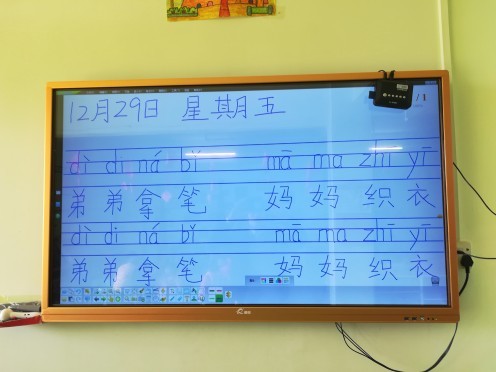 12月29日 星期五
dì di ná bǐ mā ma zhī yī
弟弟拿笔 妈妈织衣
dì di ná bǐ mā ma zhī yī
弟弟拿笔 妈妈织衣